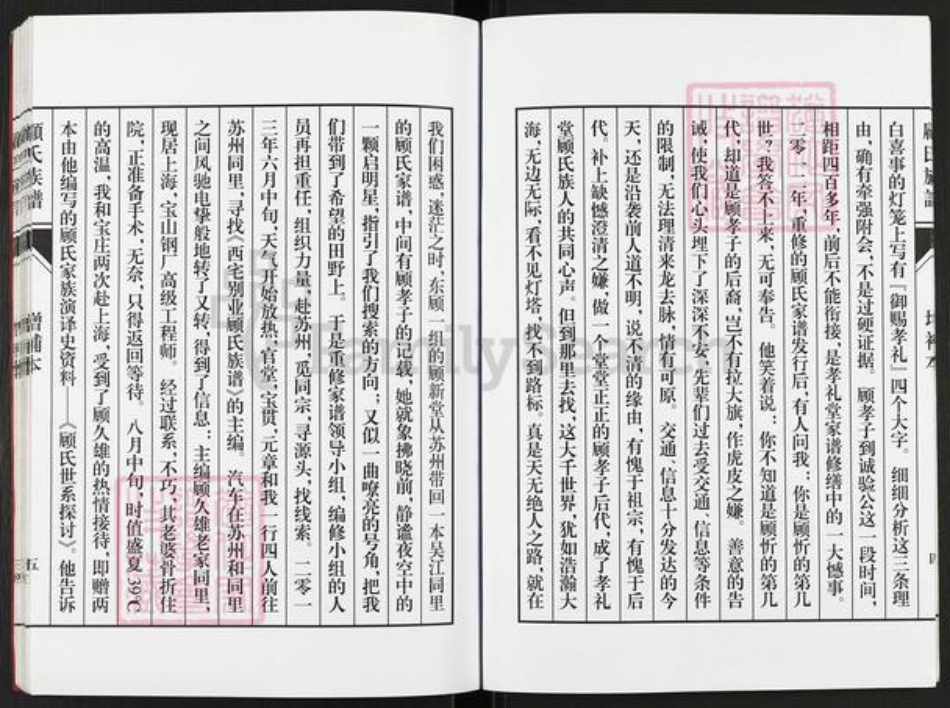 白喜事的灯笼上写有“御赐孝礼”四个大字。细细分析这三条理
由,确有牵强附会,不是过硬证据。顾孝子到诚验公这一段时间,
相距四百多年,前后不能衔接,是孝礼堂家谱修缮中的一大憾事。
二零一一年,重修的顾氏家谱发行后,有人问我:你是顾忻的第几
世?我答不上来,无可奉告。他笑着说:你不知道是顾忻的第几
代,却道是顾孝子的后裔,岂不有拉大旗,作虎皮之嫌。善意的告
诫,使我们心头埋下了深深不安,先辈们过去受交通、信息等条件
的限制,无法理清来龙去脉,情有可原。交通、信息十分发达的今
天,还是沿袭前人道不明,说不清的缘由,有愧于祖宗,有愧于后
代。补上缺憾澄清之嫌,做一个堂堂正正的顾孝子后代,成了孝礼
堂顾氏族人的共同心声。但到那里去找,这大千世界,犹如浩瀚大
海,无边无际,看不见灯塔,找不到路标。真是天无绝人之路,就在
我们困惑、迷茫之时,东顾一组的顾新堂从苏州带回一本吴江同里
的顾氏家谱,中间有顾孝子的记载,她就象拂晓前,静谧夜空中的
一颗启明星,指引了我们搜索的方向;又似一曲嘹亮的号角,把我
们带到了希望的田野上。于是重修家谱领导小组,编修小组的人
员再担重任,组织力量,赴苏州,觅同宗,寻源头,找线索。二零一
三年六月中旬,天气开始放热,官堂、宝贯、元章和我一行四人前往
苏州同里,寻找《西宅别业顾氏族谱》的主编。汽车在苏州和同里
之间风驰电挚般地转了又转,得到了信息:主编顾久雄老家同里,
现居上海,宝山钢厂高级工程师。经过联系,不巧,其老婆骨折住
院,正准备手术,无奈,只得返回等待。八月中旬,时值盛夏39℃
的高温,我和宝庄两次赴上海,受到了顾久雄的热情接待,即赠两
本由他编写的顾氏家族演译史资料——《顾氏世系探讨》。他告诉
顾氏族谱
增补本
五
FamilySearch